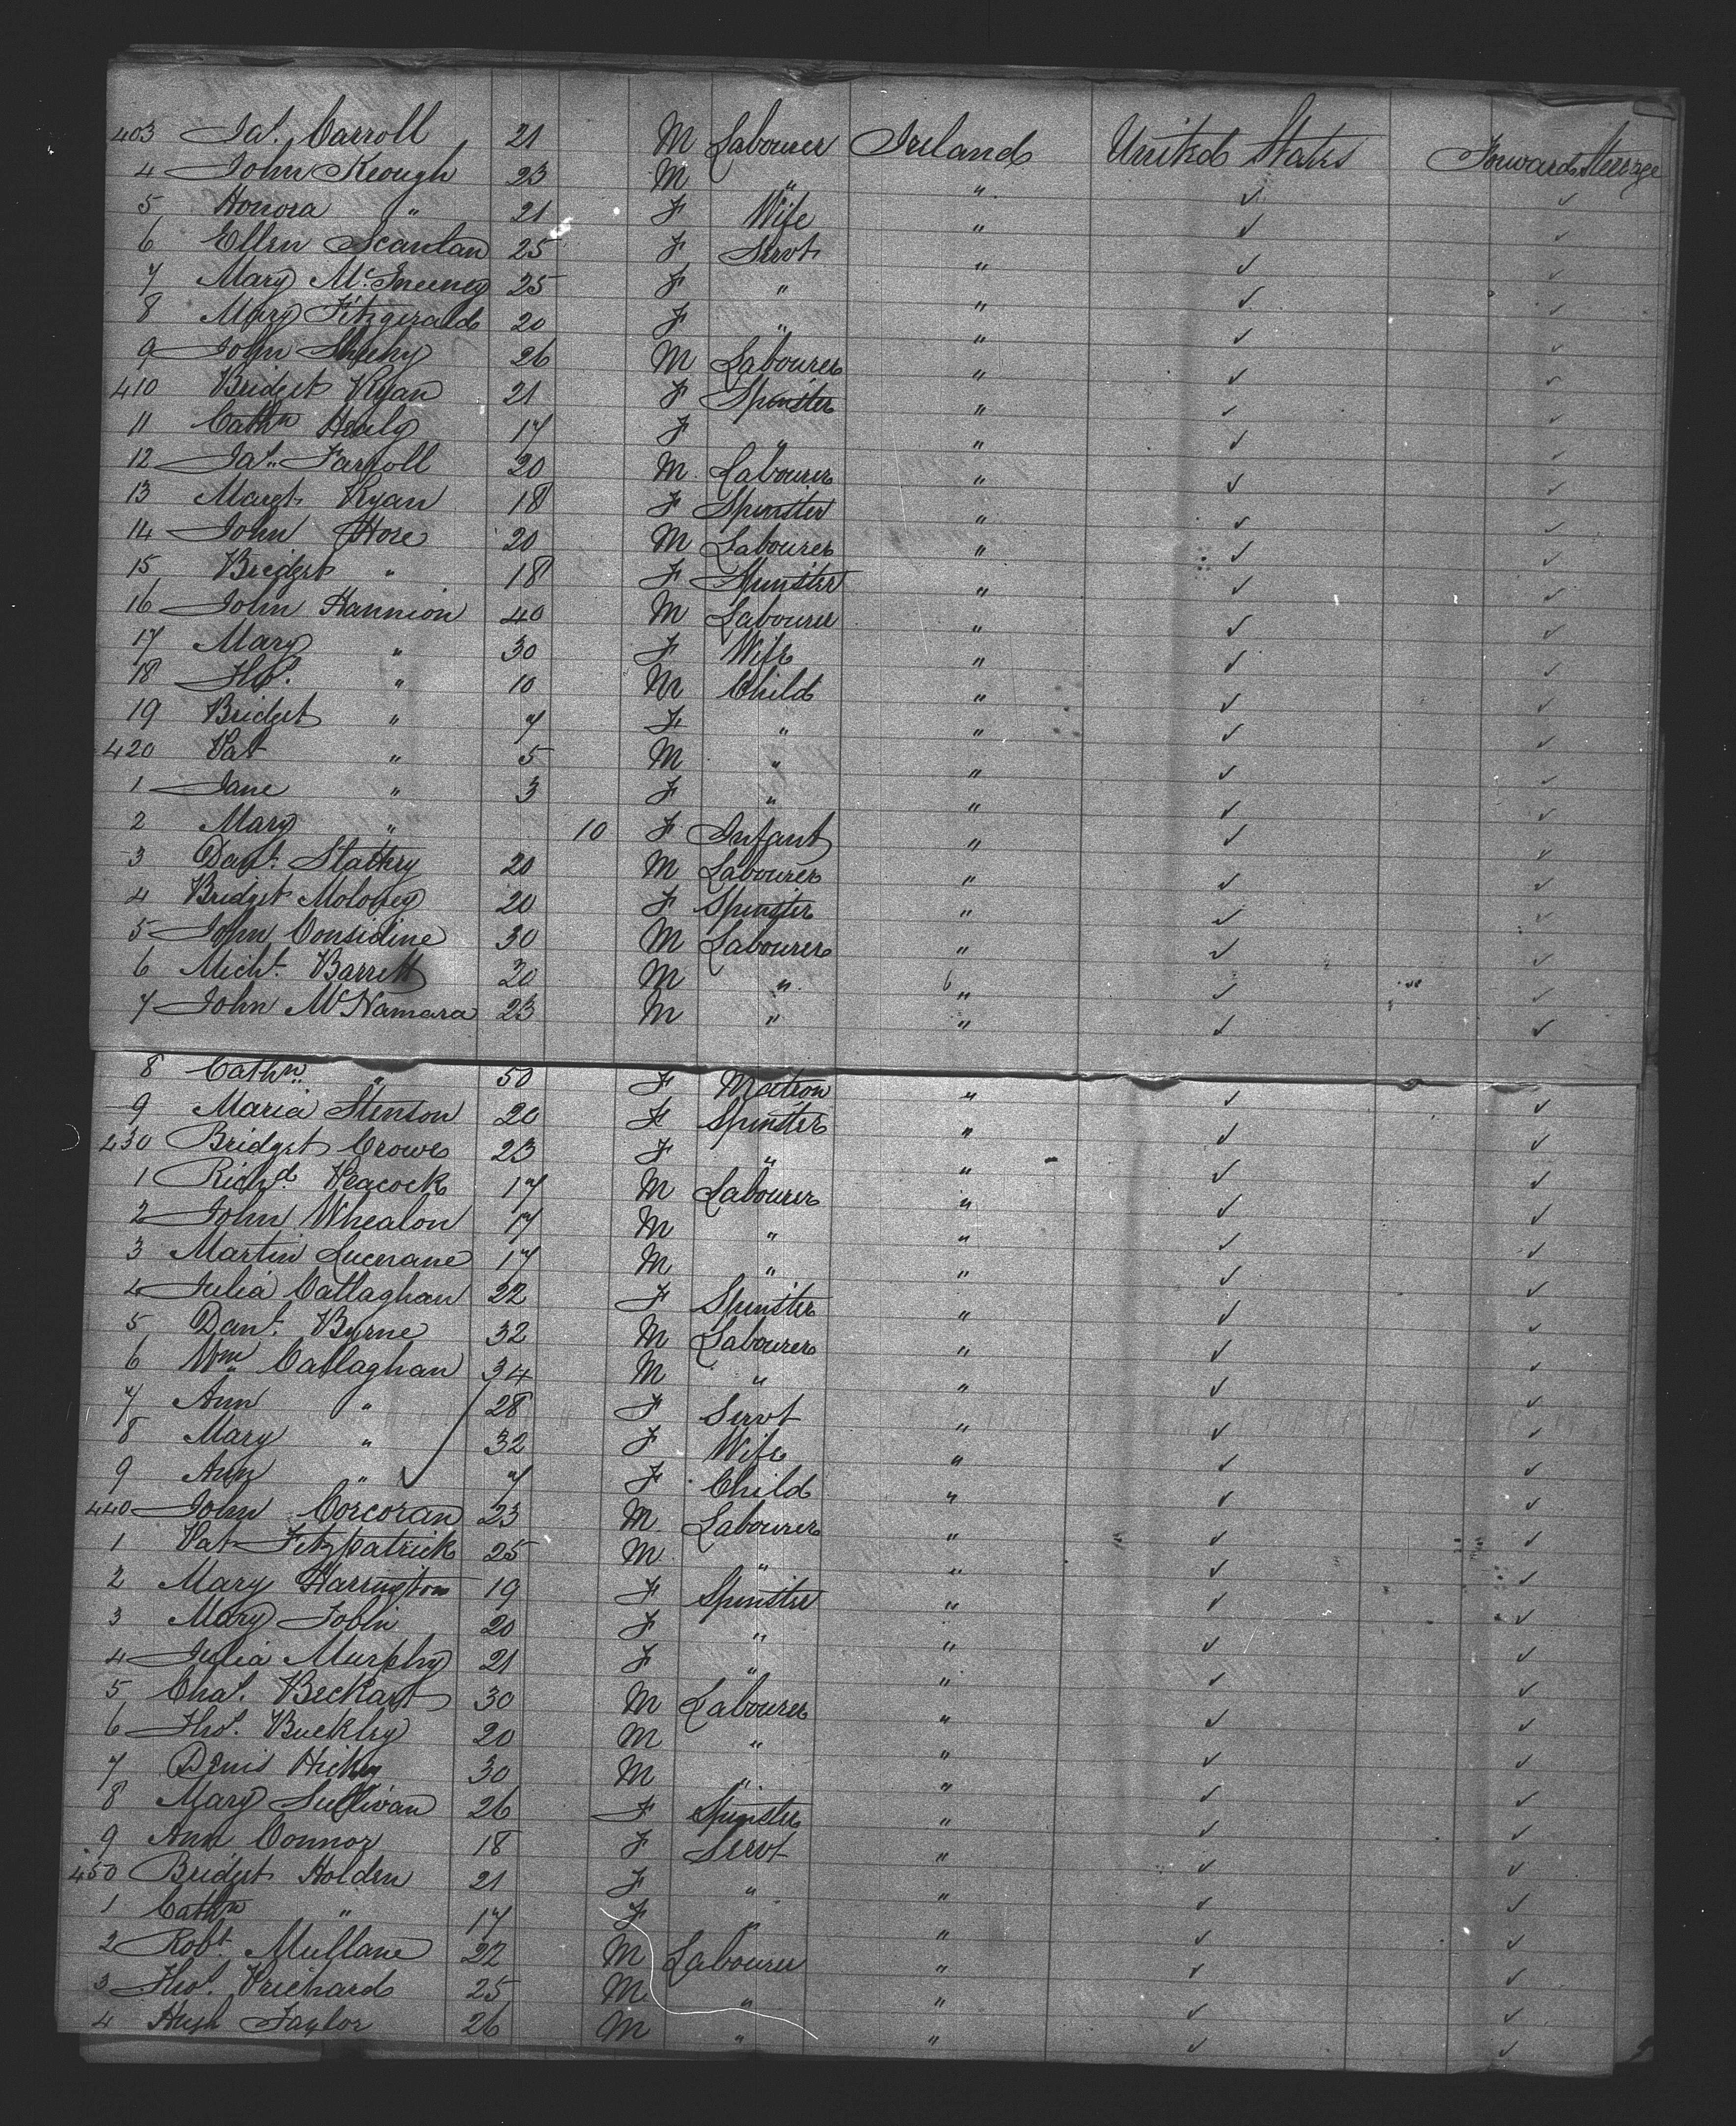 403 Jas. Carroll 21 M Labourer Ireland United States Forward Steerage
4 John Keough 23 M " " ✓ ✓
5 Honora " 21 F Wife " ✓ ✓
6 Ellen Scanlan 25 F Servt " ✓ ✓
7 Mary 25 F " " ✓ ✓
8 Mary Fitzgerald 20 F " " ✓ ✓
9 John Sheehy 26 M Labourer " ✓ ✓
410 Bridget Ryan 21 F Spinster " ✓ ✓
11 Cathn Healy 17 F " " ✓ ✓
12 Jas. Farroll 20 M Labourer " ✓ ✓
13 Margt Ryan 18 F Spinster " ✓ ✓
14 John Hore 20 M Labourer " ✓ ✓
15 Bridget " 18 F Spinster " ✓ ✓
16 John Hannion 40 M Labourer " ✓ ✓
17 Mary " 30 F Wife " ✓ ✓
18 Thos. " 10 M Child " ✓ ✓
19 Bridget " 7 F " " ✓ ✓
420 Pat " 5 M " " ✓ ✓
1 Jane " 3 F " " ✓ ✓
2 Mary " 10 F Infant " ✓ ✓
3 Danl. Slattery 20 M Labourer " ✓ ✓
4 Bridget Moloney 20 F Spinster " ✓ ✓
5 John Considine 30 M Labourer " ✓ ✓
6 Michl. Barrett 20 M " " ✓ ✓
7 John McNamara 23 M " " ✓ ✓
8 Cathn " 50 F Matron " ✓ ✓
9 Maria Stenson 20 F Spinster " ✓ ✓
430 Bridget Crowe 23 F " " ✓ ✓
1 Richd. Peacock 17 M Labourer " ✓ ✓
2 John Whealon 17 M " " ✓ ✓
3 Martin Lucnane 17 M " " ✓ ✓
4 Julia Callaghan 22 F Spinster " ✓ ✓
5 Danl. Byrne 32 M Labourer " ✓ ✓
6 Wm Callaghan 34 M " " ✓ ✓
7 Ann " 28 F Servt " ✓ ✓
8 Mary " 32 F Wife " ✓ ✓
9 Ann " 7 F Child " ✓ ✓
440 John Corcoran 23 M Labourer " ✓ ✓
1 Pat Fitzpatrick 25 M " " ✓ ✓
2 Mary Harrington 19 F Spinster " ✓ ✓
3 Mary Tobin 20 F " " ✓ ✓
4 Julia Murphy 21 F " " ✓ ✓
5 Chas. Beckart 30 M Labourer " ✓ ✓
6 Thos. Buckley 20 M " " ✓ ✓
7 Denis Hickey 30 M " " ✓ ✓
8 Mary Sullivan 26 F Spinster " ✓ ✓
9 Ann Connor 18 F Servt " ✓ ✓
450 Bridget Holden 21 F " " ✓ ✓
1 Cathn " 17 F " " ✓ ✓
2 Robt. Mullane 22 M Labourer " ✓ ✓
3 Thos. Prichard 25 M " " ✓ ✓
4 Hugh Taylor 26 M " " ✓ ✓